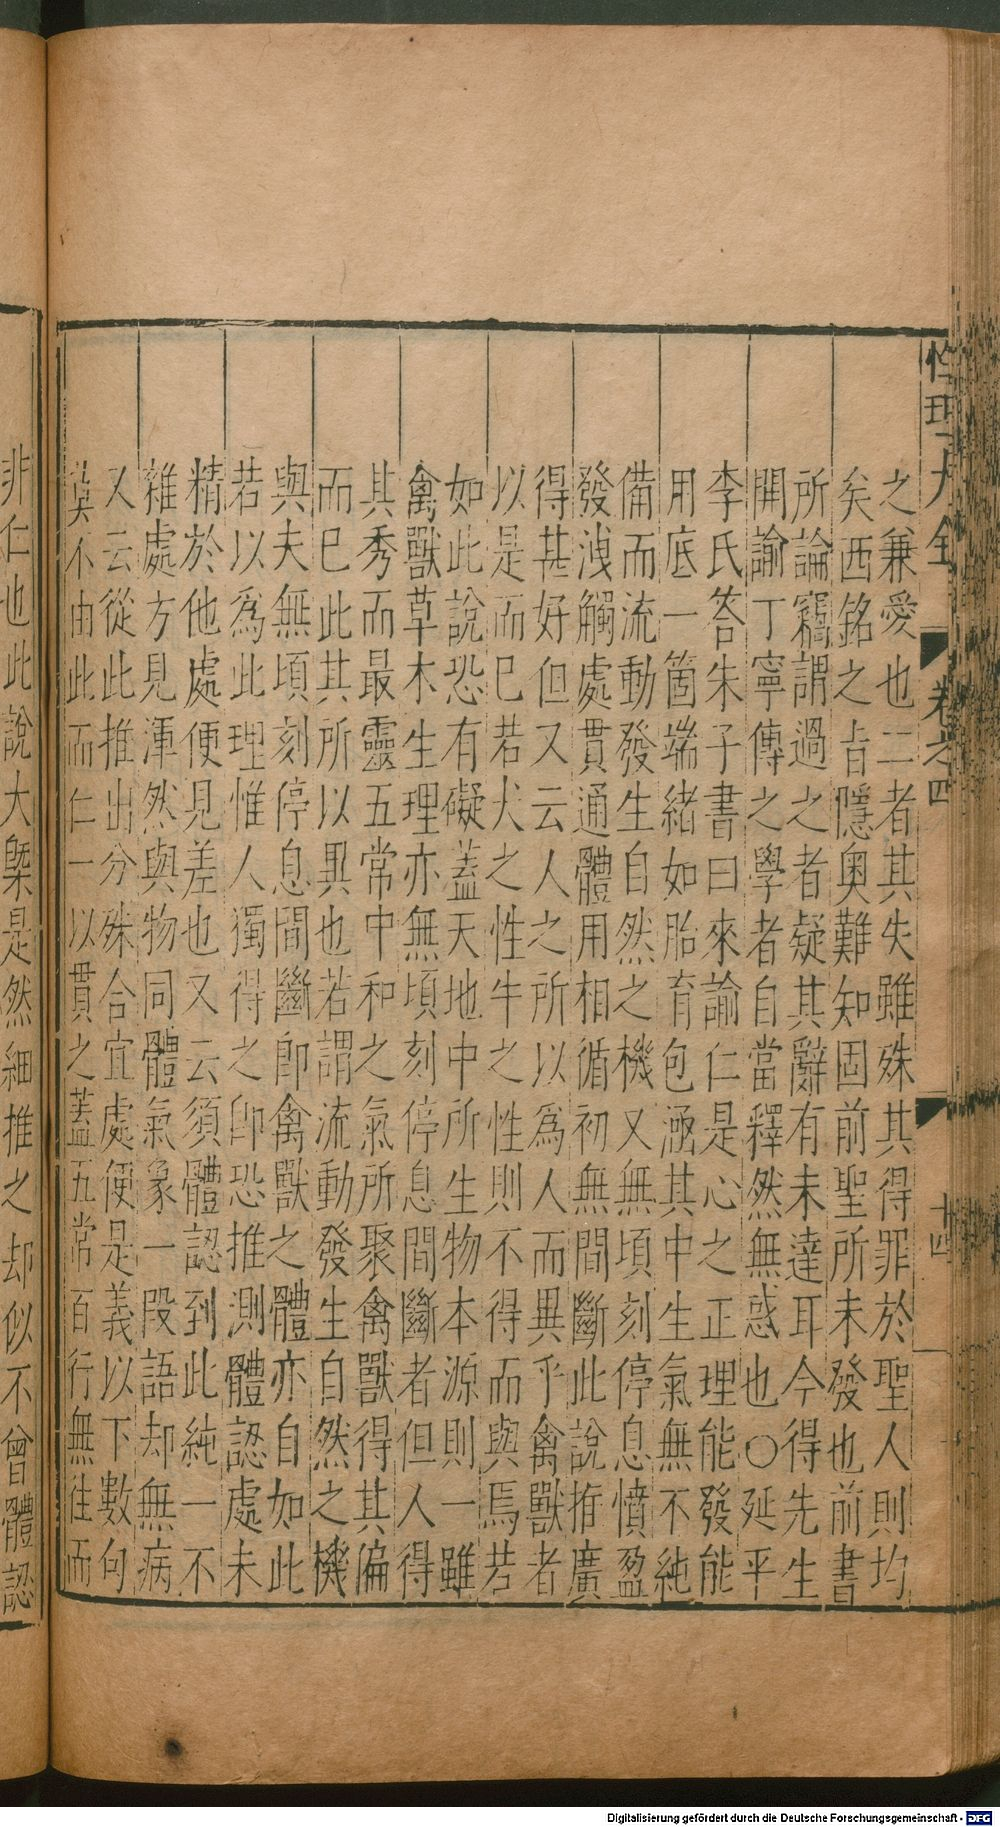 性理大全 卷之四 十四
之兼愛也二者其失雖殊其得罪於聖人則均
矣西銘之㫖隱奧難知固前聖所未發也前書
所論竊謂過之者疑其辭有未達耳今得先生
開諭丁寧傳之學者自當釋然無惑也○延平
李氏答朱子書曰來諭仁是心之正理能發能
用底一箇端緒如胎育包涵其中生氣無不純
備而流動發生自然之機又無頃刻停息憤盈
發洩觸處貫通體用相循初無間斷此說推廣
得甚好但又云人之所以為人而異乎禽獸者
以是而已若犬之性牛之性則不得而與焉若
如此說恐有礙蓋天地中所生物本源則一雖
禽獸草木生理亦無頃刻停息間斷者但人得
其秀而最靈五常中和之氣所聚禽獸得其偏
而已此其所以異也若謂流動發生自然之機
與夫無頃刻停息間斷即禽獸之體亦自如此
若以為此理惟人獨得之即恐推測體認處未
精於他處便見差也又云須體認到此純一不
雜處方見渾然與物同體氣象一段語却無病
又云從此推出分殊合宜處便是義以下數句
莫不由此而仁一以貫之蓋五常百行無往而
非仁也此說大槩是然細推之却似不曾體認
Digitalisierung gefördert durch die Deutsche Forschungsgemeinschaft - DFG